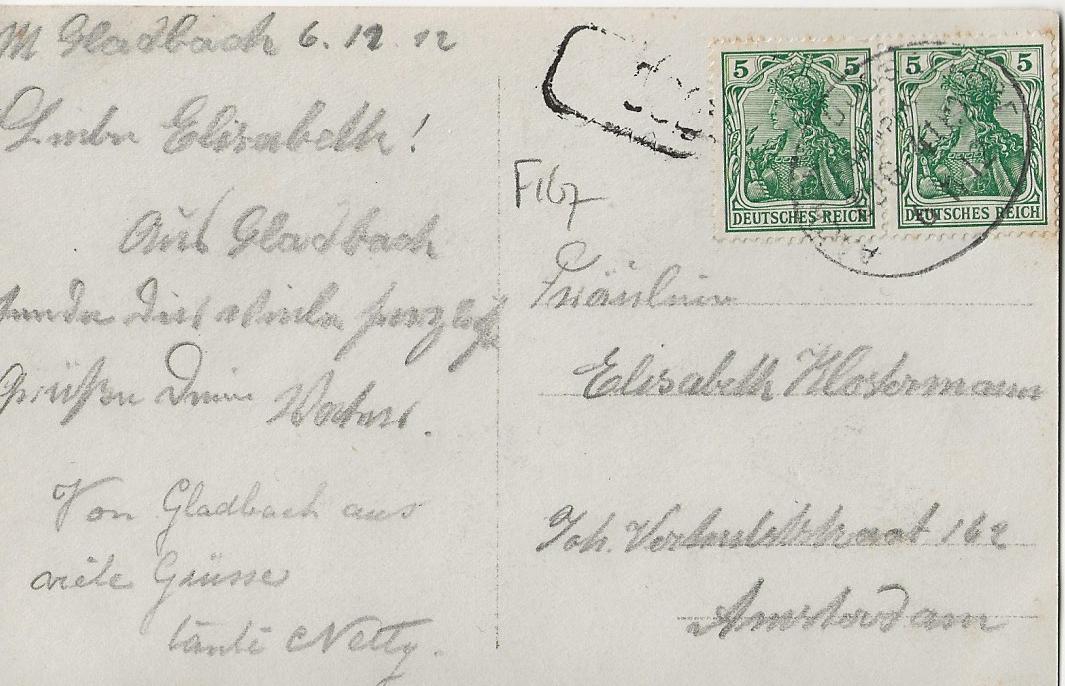 M Gladbach 6.12 12
Liebe Elisabeth!
Aus Gladbach
sende dir viele herzliche
Grüße Deine
Von Gladbach aus
viele Grüsse
tante Netty.
F167
5 5
DEUTSCHES REICH
5 5
DEUTSCHES REICH
Fräulein
Elisabeth Klostermann
Joh. Verhulststraat 162
Amsterdam